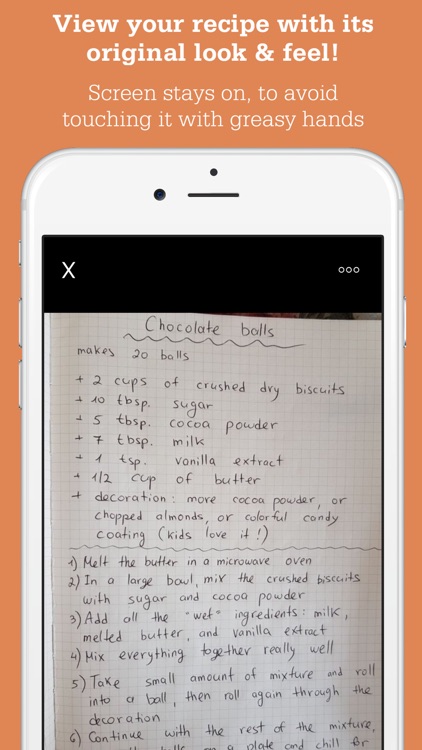 View your recipe with its
original look & feel!
Screen stays on, to avoid
touching it with greasy hands
X
Chocolate balls
makes 20 balls
+ 2 cups of crushed dry biscuits
+ 10 tbsp. sugar
+ 5 tbsp. cocoa powder
+ 7 tbsp. milk
+ 1 tsp. vanilla extract
+ 1/2 cup of butter
+ decoration: more cocoa powder, or
chopped almonds, or colorful candy
coating (kids love it!)
1) Melt the butter in a microwave oven
2) In a large bowl, mix the crushed biscuits
with sugar and cocoa powder
3) Add all the "wet" ingredients: milk,
melted butter, and vanilla extract
4) Mix everything together really well
5) Take small amount of mixture and roll
into a ball, then roll again through the
decoration
6) Continue with the rest of the mixture,
balls on a plate and chill for